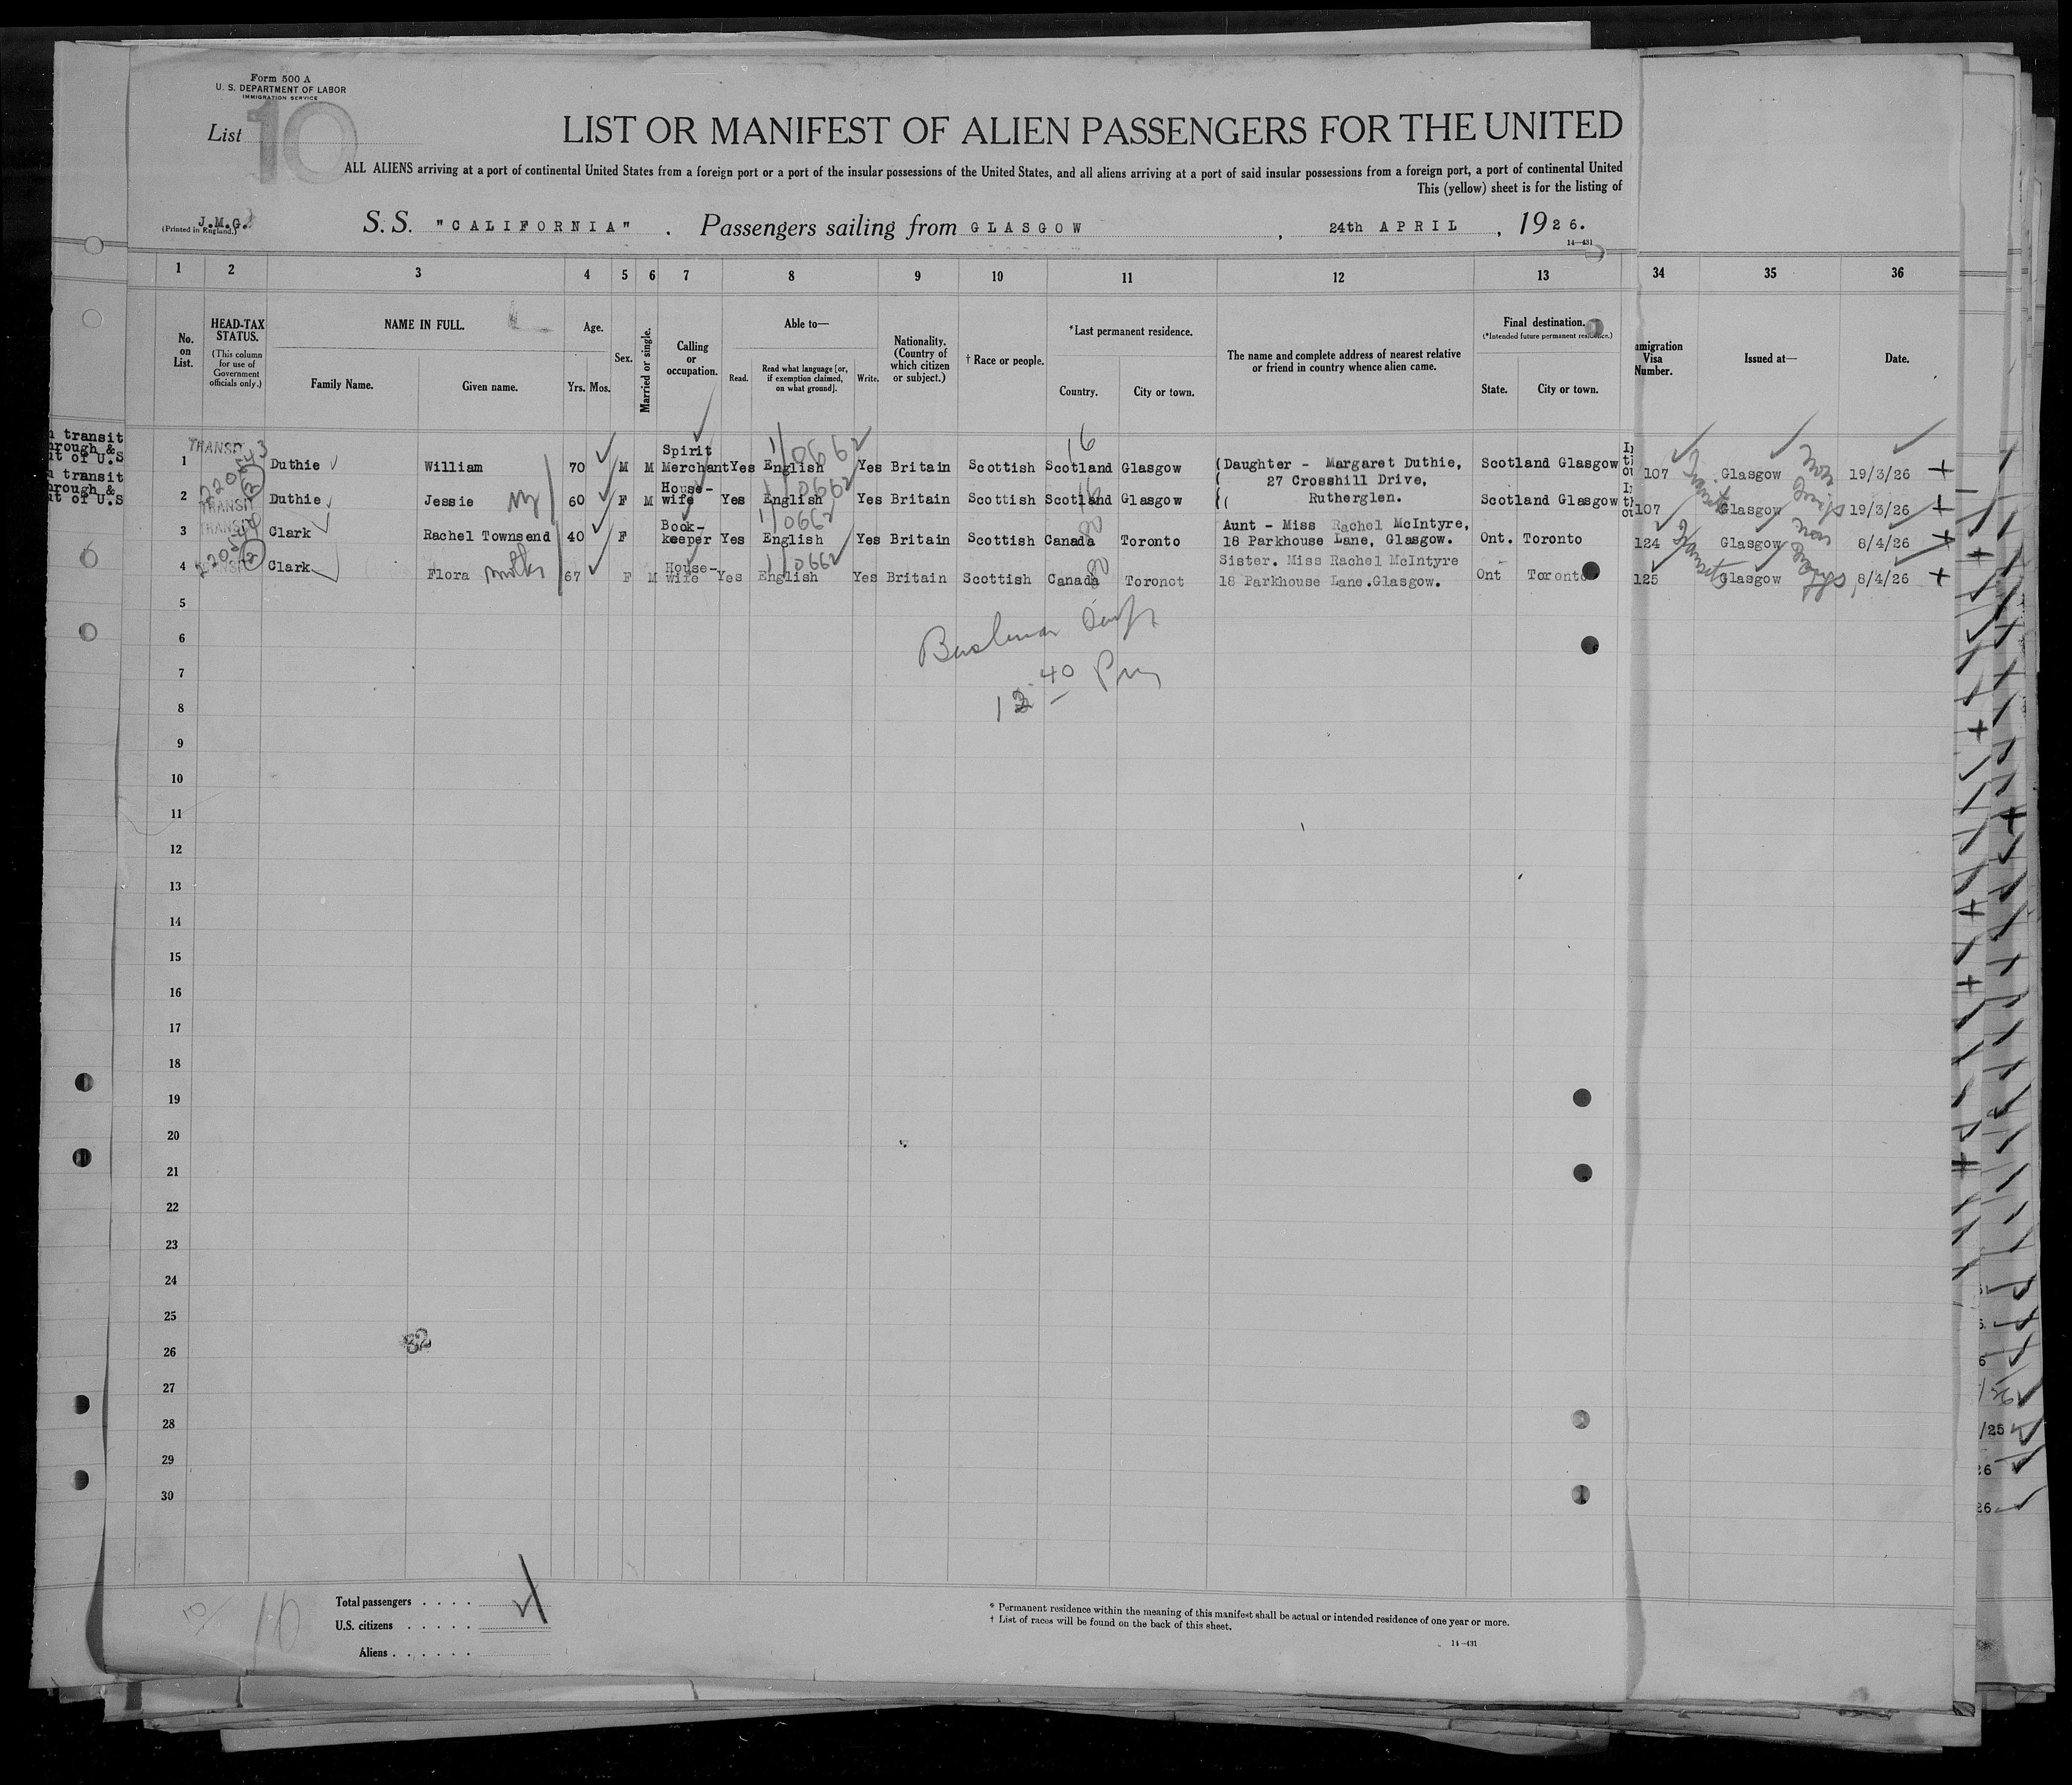 Form 500 A
U. S. DEPARTMENT OF LABOR
IMMIGRATION SERVICE
List 10
LIST OR MANIFEST OF ALIEN PASSENGERS FOR THE UNITED
ALL ALIENS arriving at a port of continental United States from a foreign port or a port of the insular possessions of the United States, and all aliens arriving at a port of said insular possessions from a foreign port, a port of continental United
This (yellow) sheet is for the listing of
J.M.G.
(Printed in England.)
S. S. "CALIFORNIA" . Passengers sailing from GLASGOW , 24th APRIL , 1926.
14—431
1 2 3 4 5 6 7 8 9 10 11 12 13 34 35 36
No. on List.
HEAD-TAX STATUS.
(This column for use of Government officials only.)
NAME IN FULL.
Family Name. Given name.
Age.
Yrs. Mos.
Sex.
Married or single.
Calling or occupation.
Able to—
Read. Read what language [or, if exemption claimed, on what ground]. Write.
Nationality. (Country of which citizen or subject.)
† Race or people.
*Last permanent residence.
Country. City or town.
The name and complete address of nearest relative or friend in country whence alien came.
Final destination.
(*Intended future permanent residence.)
State. City or town.
mmigration Visa Number.
Issued at—
Date.
transit
hrough &
ut of U.S
transit
hrough &
ut of U.S
1 TRANSIT Duthie William 70 M M Spirit Merchant Yes English Yes Britain Scottish Scotland Glasgow (Daughter - Margaret Duthie, Scotland Glasgow 107 Glasgow 19/3/26
( 27 Crosshill Drive,
2 TRANSIT Duthie Jessie 60 F M House-wife Yes English Yes Britain Scottish Scotland Glasgow (( Rutherglen. Scotland Glasgow 107 Glasgow 19/3/26
3 TRANSIT Clark Rachel Townsend 40 F Book-keeper Yes English Yes Britain Scottish Canada Toronto Aunt - Miss Rachel McIntyre, 18 Parkhouse Lane, Glasgow. Ont. Toronto 124 Glasgow 8/4/26
4 TRANSIT Clark Flora mother 67 F M House-wife Yes English Yes Britain Scottish Canada Toronot Sister. Miss Rachel McIntyre 18 Parkhouse Lane.Glasgow. Ont Toronto 125 Glasgow 8/4/26
1/0662
1/0662
1/0662
1/0662
16
16
5
6
7
40 Pm
8
9
10
11
12
13
14
15
16
17
18
19
20
21
22
23
24
25
26
27
28
29
30
32
/25
26
26
10
Total passengers . . . . 4
U.S. citizens . . . . .
Aliens . . . . . .
* Permanent residence within the meaning of this manifest shall be actual or intended residence of one year or more.
† List of races will be found on the back of this sheet.
14—431